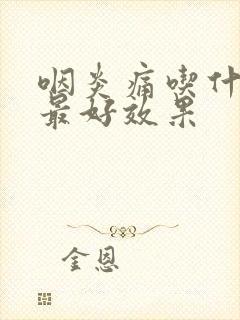 咽炎痛喫什
最好效果
金恩